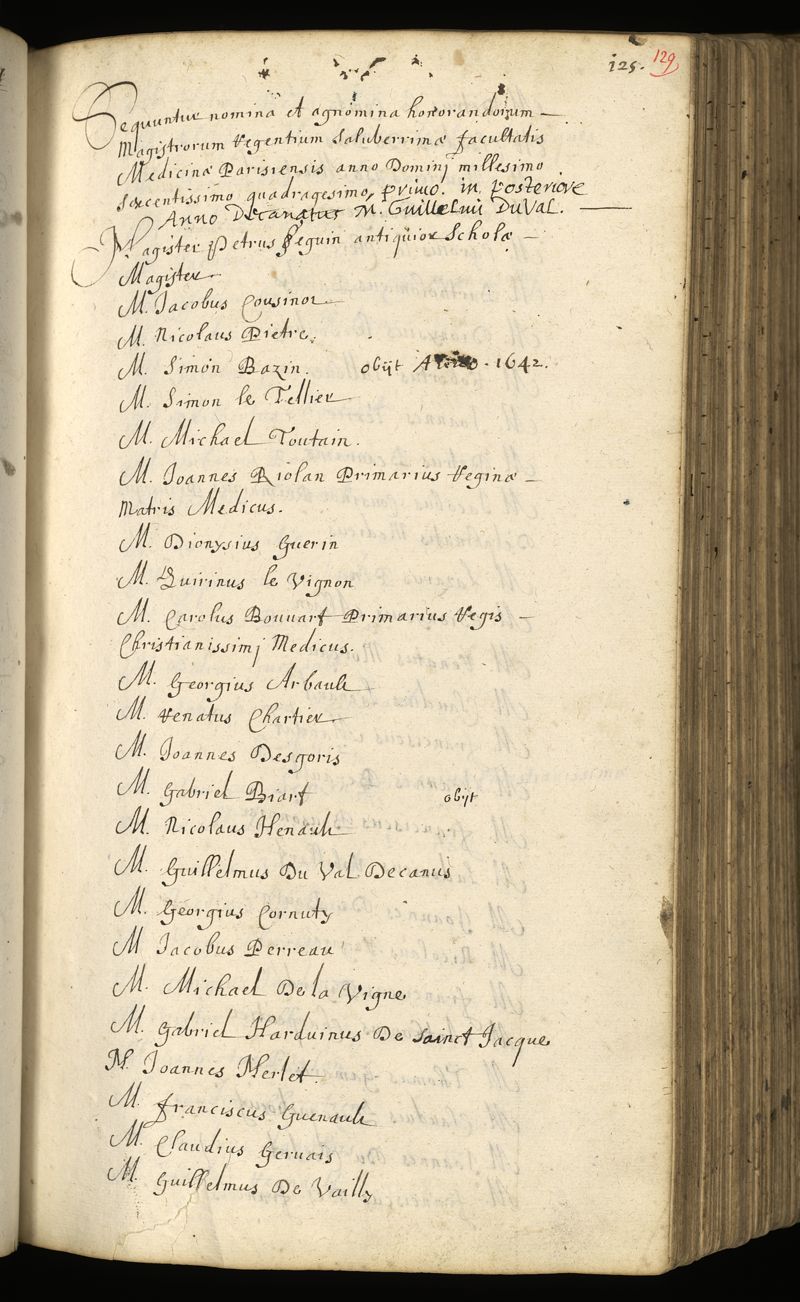 125. 129
Sequuntur nomina et agnomina honorandorum
Magistrorum Regentium saluberrimæ facultatis
Medicinæ Parisiensis anno Dominj millesimo
sexcentissimo quadragesimo, primo. in posteriore
Anno Decanatus M. Guillelmi DuVal.
Magister Petrus Seguin antiquior Scholæ
Magister
M. Jacobus Cousinot
M. Nicolaus Pietre.
M. Simon Bazin. obijt 1642.
M. Simon le Tellier
M. Michael Toutain.
M. Joannes Riolan Primarius Reginæ
Matris Medicus.
M. Dionysius Guerin
M. Quirinus le Vignon
M. Carolus Bouvart Primarius Regis
Christianissimj Medicus.
M. Georgius Arbault
M. Renatus Chartier
M. Joannes Desgoris
M. Gabriel Biart obijt
M. Nicolaus Henault
M. Guillelmus Du Val Decanus
M. Georgius Cornuty
M Jacobus Perreau
M. Michael De la Vigne
M. Gabriel Harduinus De Sainct Jacque
M. Joannes Merlet.
M. Franciscus Guenault
M. Claudius Gervais
M. Guillelmus De Vailly